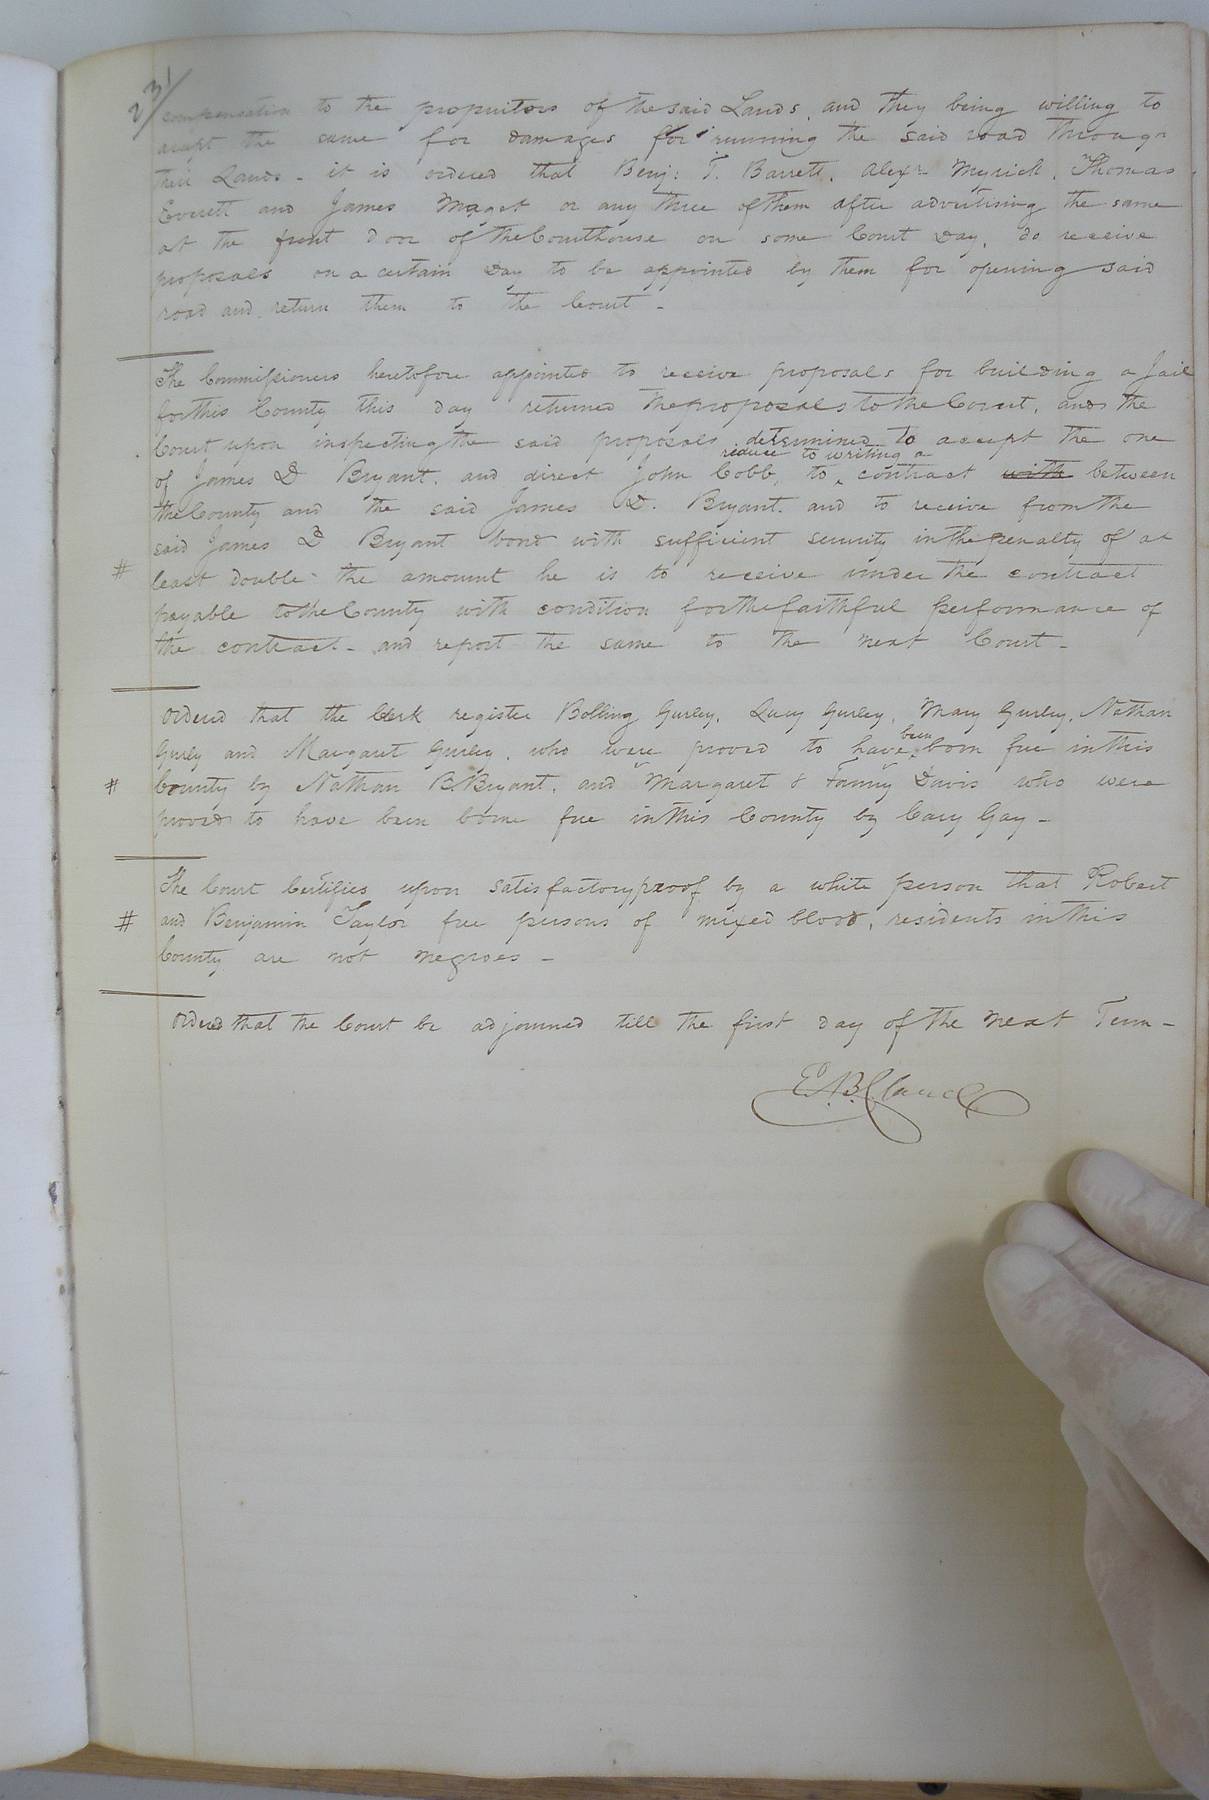 231
compensation to the proprietors of the said Lands, and they being willing to
accept the same for damages for running the said road through
their Lands - it is ordered that Benj: T. Barrett, Alexr Myrick, Thomas
Everett and James Maget or any three of them after advertising the same
at the front door of the Courthouse on some Court Day, do receive
proposals on a certain Day to be appointed by them for opening said
road and return them to the Court -
The Commissioners heretofore appointed to receive proposals for building a Jail
for this County this day returned the proposals to the Court, and the
Court upon inspecting the said proposals determined to accept the one
reduce to writing a
of James D Bryant, and direct John Cobb, to ^ contract with between
the County and the said James D. Bryant. and to receive from the
said James D Bryant bond with sufficient security in the penalty of at
# least double the amount he is to receive under the contract
payable to the County with condition for the faithful performance of
the contract - and report the same to the next Court -
Ordered that the Clerk register Bolling Gurley, Lucy Gurley, Mary Gurley, Nathan
been
Gurley and Margaret Gurley, who were proved to have ^ born free in this
# County by Nathan B Bryant, and Margaret & Fanny Davis who were
proved to have been borne free in this County by Cary Gay -
The Court Certifies upon satisfactory proof by a white person that Robert
# and Benjamin Taylor free persons of mixed blood, residents in this
County are not negroes -
Ordered that the Court be adjourned till the first day of the next Term -
E. B. Claud